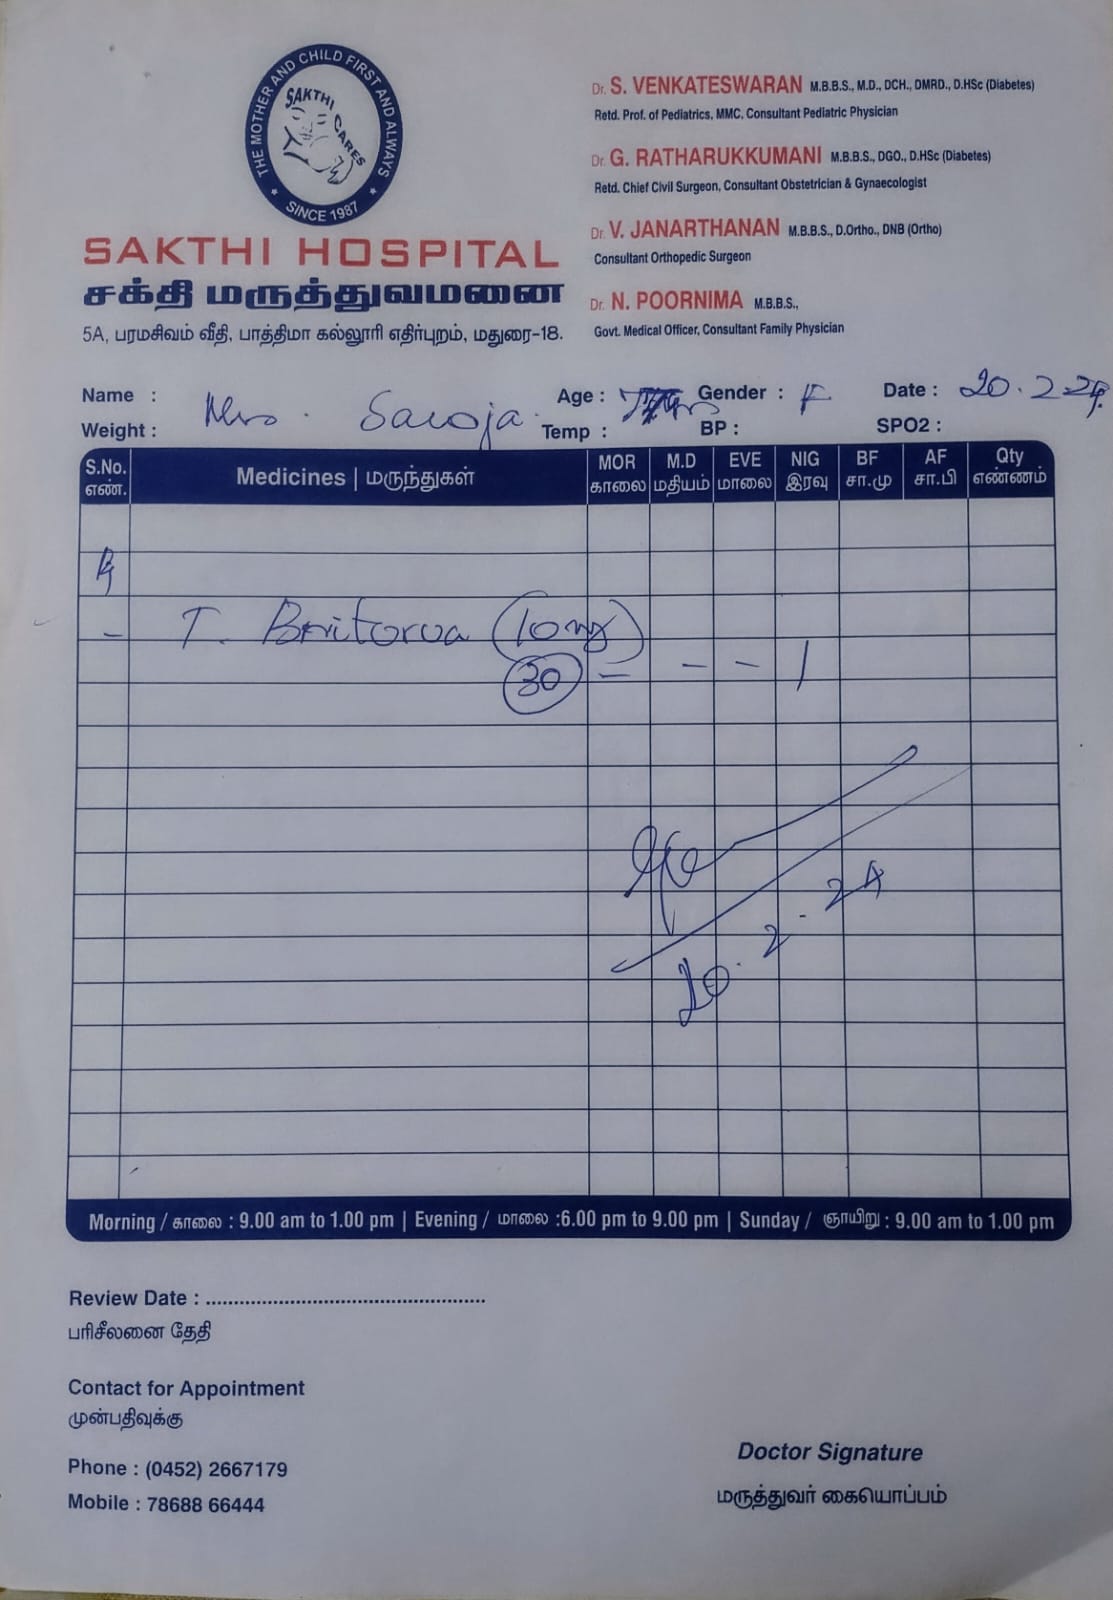 THE MOTHER AND CHILD FIRST AND ALWAYS
SAKTHI CARES
SINCE 1987
SAKTHI HOSPITAL
சக்தி மருத்துவமனை
5A, பரமசிவம் வீதி, பாத்திமா கல்லூரி எதிர்புறம், மதுரை-18.
Dr. S. VENKATESWARAN M.B.B.S., M.D., DCH., DMRD., D.HSc (Diabetes)
Retd. Prof. of Pediatrics, MMC, Consultant Pediatric Physician
Dr. G. RATHARUKKUMANI M.B.B.S., DGO., D.HSc (Diabetes)
Retd. Chief Civil Surgeon, Consultant Obstetrician & Gynaecologist
Dr. V. JANARTHANAN M.B.B.S., D.Ortho., DNB (Ortho)
Consultant Orthopedic Surgeon
Dr. N. POORNIMA M.B.B.S.,
Govt. Medical Officer, Consultant Family Physician
Name : Mrs. Saroja. Age : Gender : F Date : 20.2.24
Weight : Temp : BP : SPO2 :
S.No. Medicines | மருந்துகள் MOR M.D EVE NIG BF AF Qty
எண். காலை மதியம் மாலை இரவு சா.மு சா.பி எண்ணம்
Rx
- T. Britorva (10mg)
30 - - - 1
20.2.24
Morning / காலை : 9.00 am to 1.00 pm | Evening / மாலை :6.00 pm to 9.00 pm | Sunday / ஞாயிறு : 9.00 am to 1.00 pm
Review Date : ....................................................
பரிசீலனை தேதி
Contact for Appointment
முன்பதிவுக்கு
Phone : (0452) 2667179
Mobile : 78688 66444
Doctor Signature
மருத்துவர் கையொப்பம்